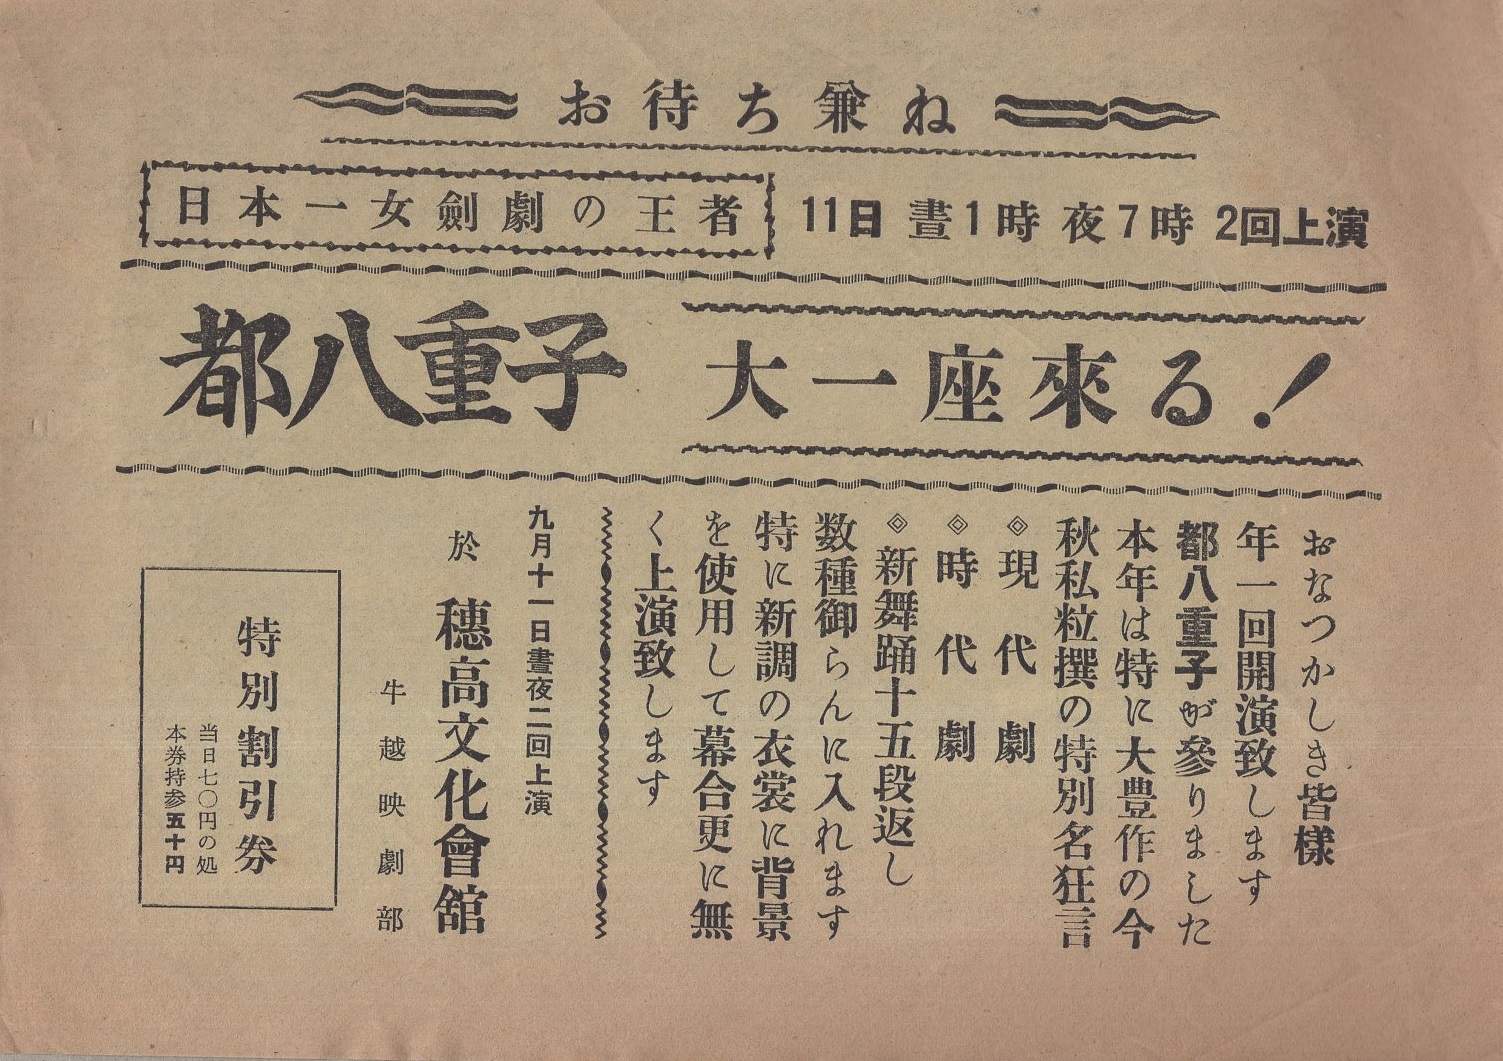 お待ち兼ね
日本一女劍劇の王者
11日 晝1時 夜7時 2回上演
都八重子
大一座來る!
おなつかしき皆様
年一回開演致します
都八重子が參りました
本年は特に大豊作の今
秋私粒撰の特別名狂言
◈現代劇
◈時代劇
◈新舞踊十五段返し
数種御らんに入れます
特に新調の衣裳に背景
を使用して幕合更に無
く上演致します
九月十一日晝夜二回上演
於 穗高文化會舘
牛越映劇部
特別割引券
当日七〇円の処
本券持参五十円